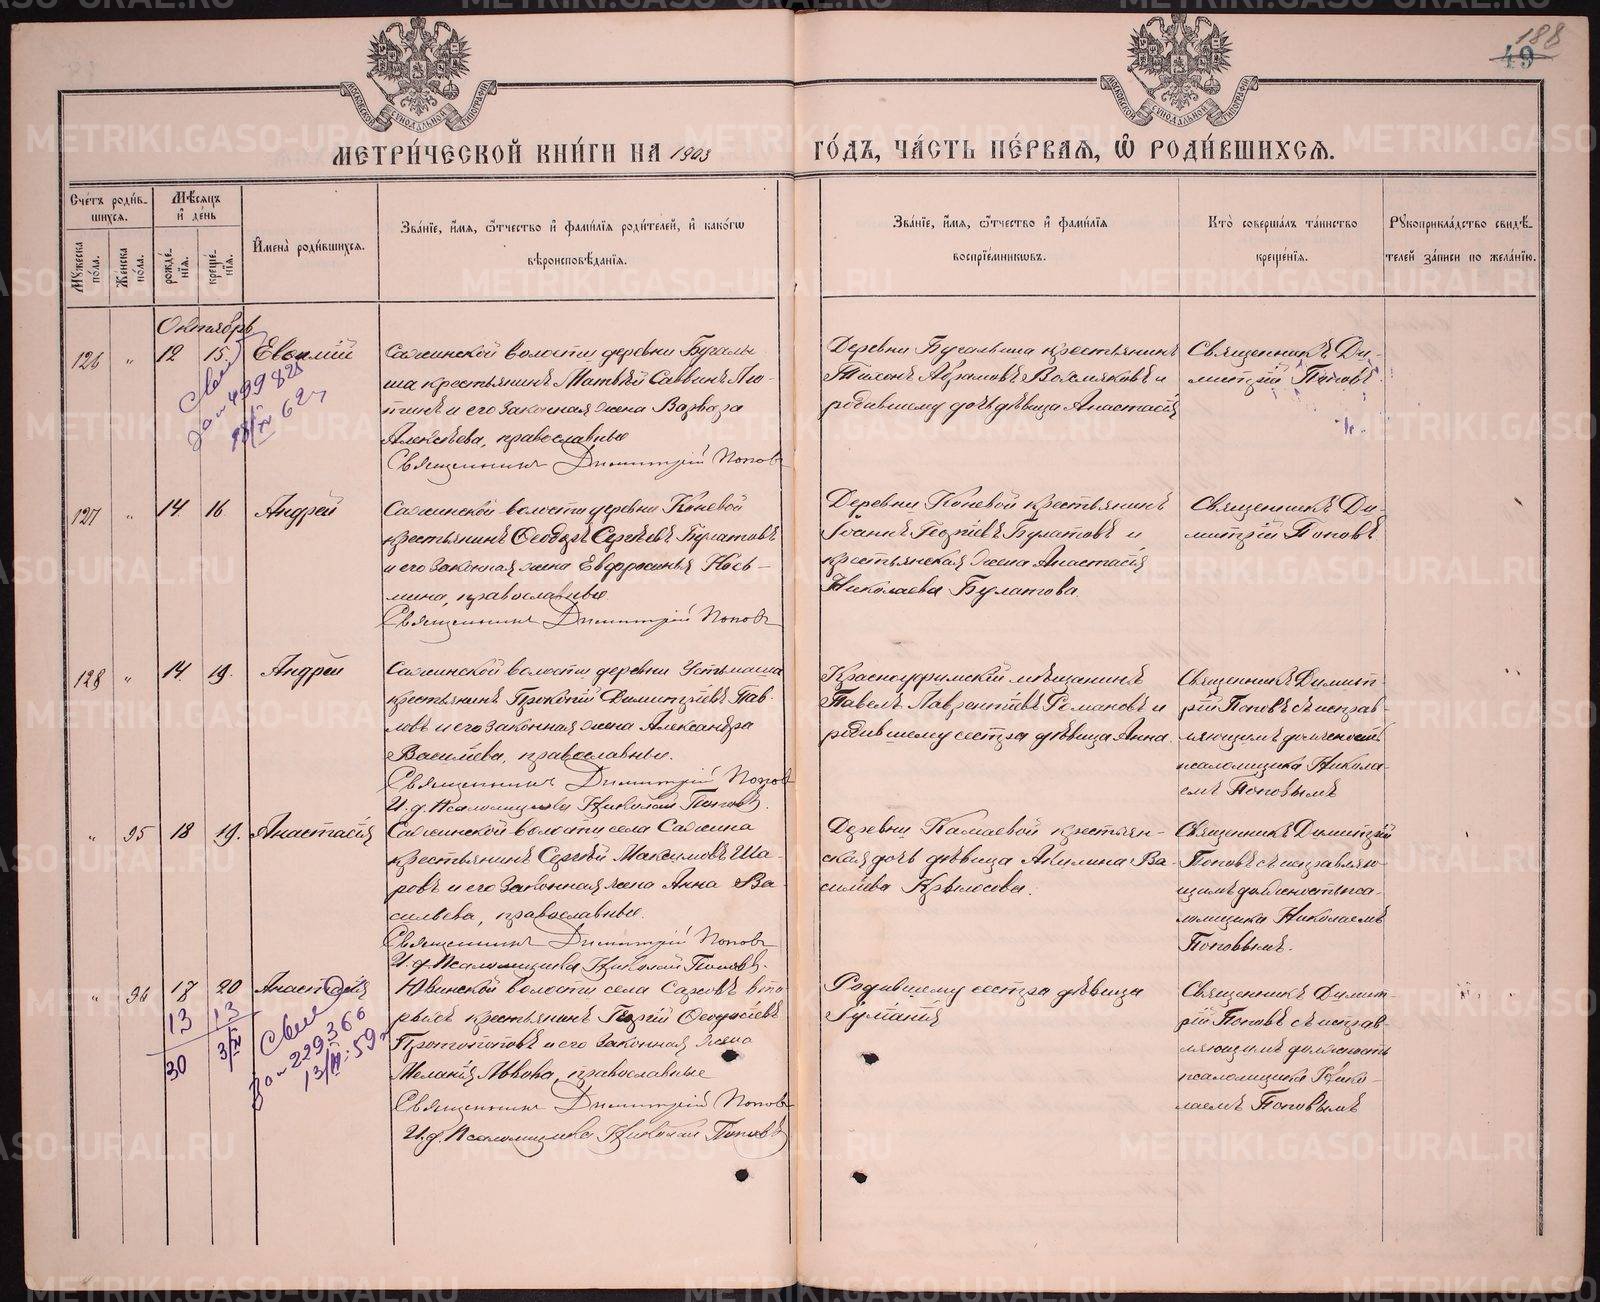 188
49
МОСКОВСКОЙ СѴНОДАЛЬНОЙ ТИПОГРАФІИ
МОСКОВСКОЙ СѴНОДАЛЬНОЙ ТИПОГРАФІИ
МЕТРИ́ЧЕСКОЙ КНИ́ГИ НА 1903 ГО́ДЪ, ЧА́СТЬ ПЕ́РВАЯ, Ѽ РОДИ́ВШИХСЯ.
Сче́тъ роди́в-
шихся.
Мѣ́сяцъ
и҆ де́нь
Мꙋжеска по́ла.
Же́нска по́ла.
рожде́-
нїя.
креще́-
нїя.
И҆мена̀ роди́вшихся.
Зва́нїе, и҆́мя, ѻ҆́тчество и҆ фами́лїя роди́телей, и҆ како́гѡ
вѣроисповѣ́данїя.
Зва́нїе, и҆́мя, ѻ҆́тчество и҆ фами́лїя
воспрїе́мникѡвъ.
Кто̀ соверша́лъ та́инство
креще́нїя.
Рꙋкоприкла́дство свидѣ́-
телей за́писи по жела́нїю.
Октябрь
126 " 12 15. Евѳимій
Сажинской волости деревни Бугалы
ша крестьянинъ Матѳѣй Саввинъ
и его законная жена Варвара
Алексѣева, православные
Священникъ Димитрій Поповъ
Деревни Бугалыша крестьянинъ
Тихонъ Аврамовъ и
родившему дочь дѣвица Анастасія
Священникъ Ди-
митрій Поповъ
127 " 14. 16. Андрей
Сажинской волости деревни Коневой
крестьянинъ Ѳеодоръ Сергѣевъ Булатовъ
и его законная жена Евфросинья Кось-
мина, православные.
Священникъ Димитрій Поповъ
Деревни Коневой крестьянинъ
Іоаннъ Георгіевъ Булатовъ и
крестьянская жена Анастасія
Николаева Булатова.
Священникъ Ди-
митрій Поповъ
128 " 14. 19. Андрей
Сажинской волости деревни Устьмаша
крестьянинъ Прокопій Димитріевъ Пав-
ловъ и его законная жена Александра
Василіева, православные.
Священникъ Димитрій Поповъ
И. д. Псаломщика Николай Поповъ.
Красноуфимскій мѣщанинъ
Павелъ Лаврентіевъ Романовъ и
родившему сестра дѣвица Анна.
Священникъ Димит-
рій Поповъ съ исправ-
ляющимъ должность
псаломщика Никола-
емъ Поповымъ
" 95 18 19. Анастасія
Сажинской волости села Сажина
крестьянинъ Сергѣй Максимовъ Ша-
ровъ и его законная жена Анна Ва-
сильева, православные.
Священникъ Димитрій Поповъ
И. д. Псаломщика Николай Поповъ.
Деревни Камаевой крестьян-
ская дочь дѣвица Акилина Ва-
силіева Крылосова.
Священникъ Димитрій
Поповъ съ исправляю-
щимъ должность пса-
ломщика Николаемъ
Поповымъ.
" 96 17 20 Анастасія
13 13
30 3/XI
Ювинской волости села Сарсовъ вто-
рыхъ крестьянинъ Георгій Ѳеодосіевъ
Протопоповъ и его законная жена
Меланія Львова, православные
Священникъ Димитрій Поповъ
И. д. Псаломщика Николай Поповъ
Родившему сестра дѣвица
Іуліанія
Священникъ Димит-
рій Поповъ съ исправ-
ляющимъ должность
псаломщика Нико-
лаемъ Поповымъ